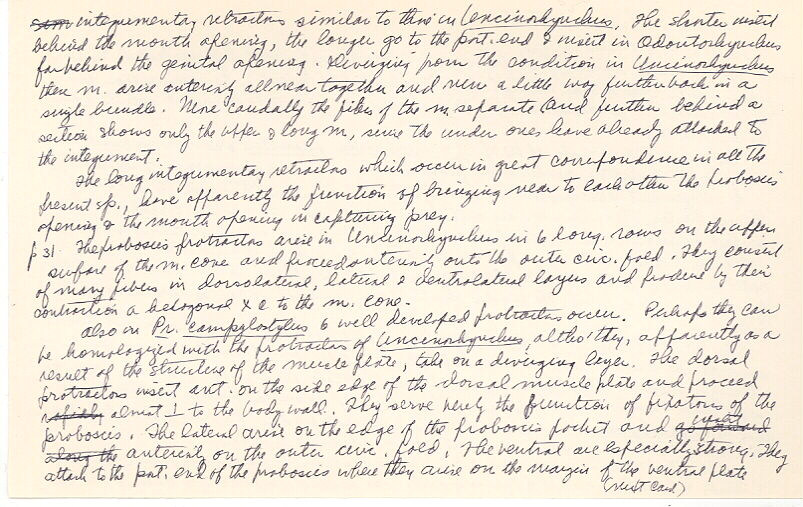 integumentary retractors similar to those in Uncinorhynchus. The shorter insert
behind the mouth opening, the longer go to the post. end & insert in Odontorhynchus
far behind the genital opening. Diverging from the condition in Uncinorhynchus
these m. arise anteriorly all near together and run a little way further back in a
single bundle. More caudally the fibers of the m. separate and further behind a
section shows only the upper & long m, since the under ones have already attached to
the integument.
The long integumentary retractors which occur in great correspondence in all the
present sp., have apparently the function of bringing near to each other the proboscis
opening & the mouth opening in capturing prey.
p 31. The proboscis protractors arise in Uncinorhynchus in 6 long. rows on the upper
surface of the m. cone and proceed anteriorly onto the outer circ. fold. They consist
of many fibers in dorsolateral, lateral & ventrolateral layers and produce by their
contraction a hexagonal x c to the m. cone.
Also in Pr. campylostylus 6 well developed protractors occur. Perhaps they can
be homologized with the protractors of Uncinorhynchus, altho' they, apparently as a
result of the structure of the muscle plate, take on a diverging layer. The dorsal
protractors insert ant. on the side edge of the dorsal muscle plate and proceed
almost ⊥ to the body wall. They serve merely the function of fixators of the
proboscis. The lateral arise on the edge of the proboscis pocket and insert
along the anteriorly on the outer circ. fold. The ventral are especially strong. They
attach to the post. end of the proboscis where they arise on the margin of the ventral plate
(next card)